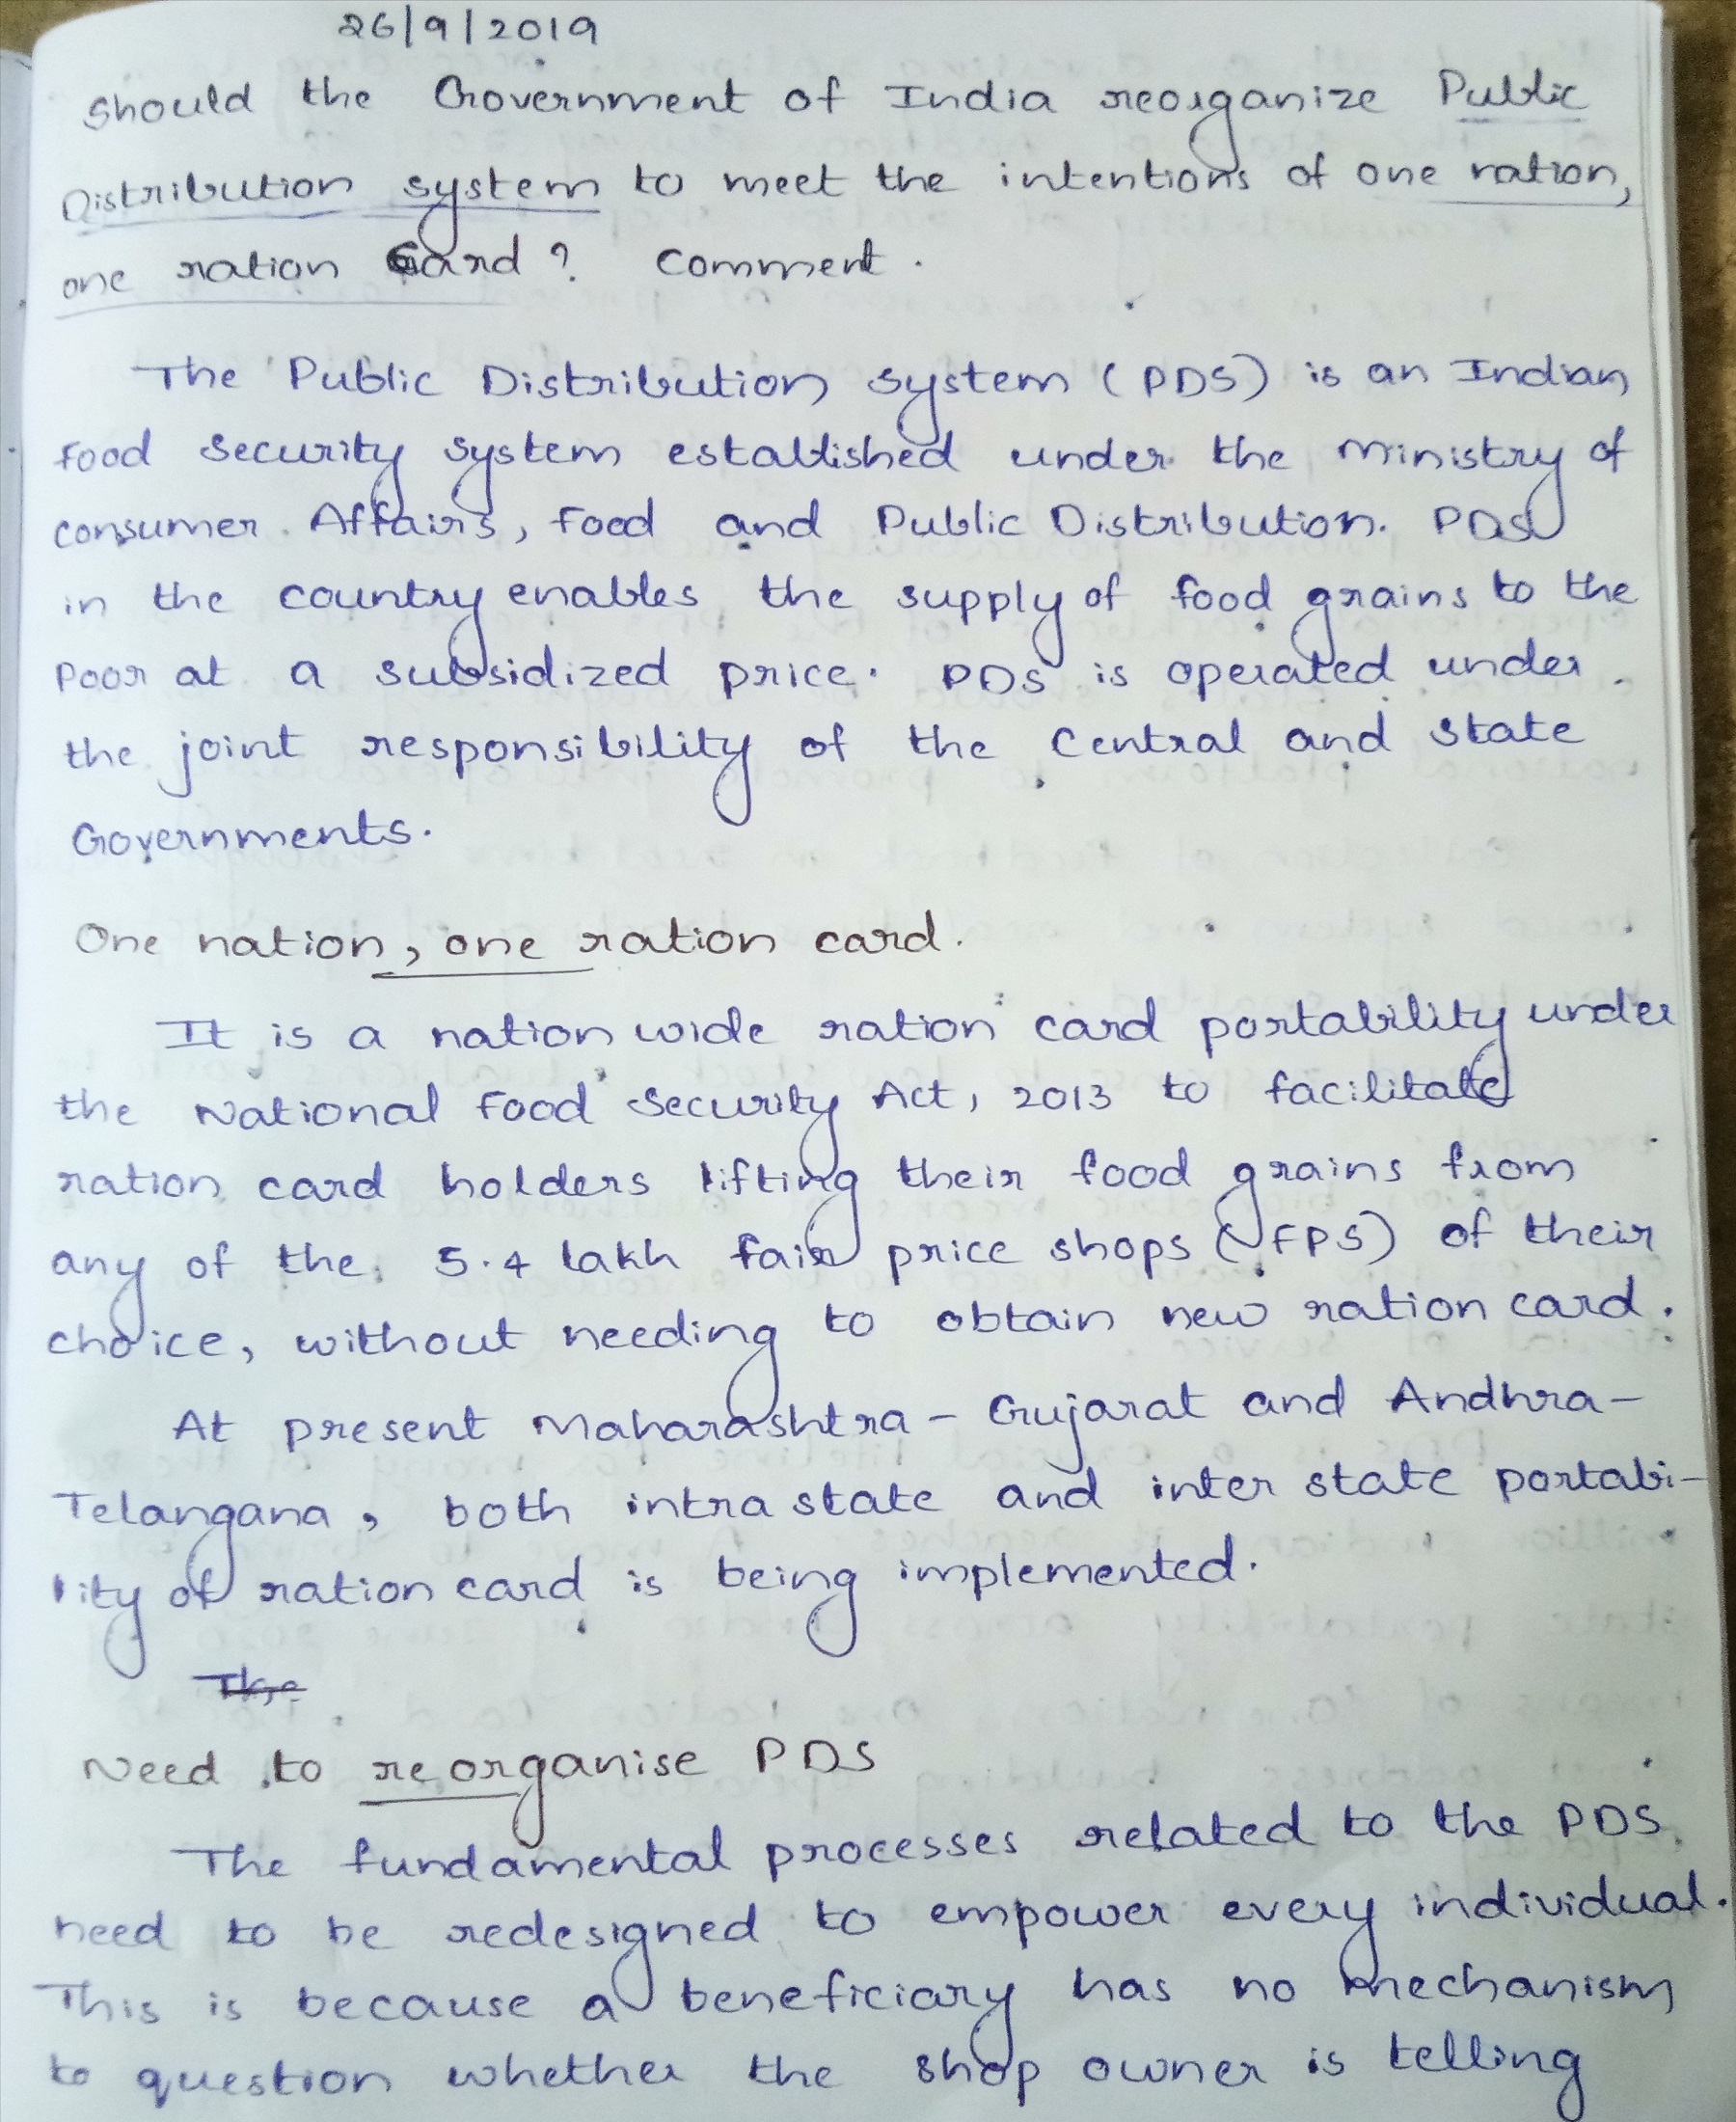 26/9/2019
should the Government of India reorganize Public
Distribution system to meet the intentions of one nation,
one ration Card? Comment.
The Public Distribution system (PDS) is an Indian
food security system established under the ministry of
consumer Affairs, Food and Public Distribution. PDS
in the country enables the supply of food grains to the
poor at a subsidized price. PDS is operated under
the joint responsibility of the Central and State
Governments.
One nation, one ration card.
It is a nation wide ration card portability under
the National Food Security Act, 2013 to facilitate
ration card holders lifting their food grains from
any of the 5.4 lakh fair price shops (FPS) of their
choice, without needing to obtain new ration card.
At present Maharashtra - Gujarat and Andhra-
Telangana, both intra state and inter state portabi-
lity of ration card is being implemented.
Need to reorganise PDS
The fundamental processes related to the PDS
need to be redesigned to empower every individual.
This is because a beneficiary has no mechanism
to question whether the shop owner is telling